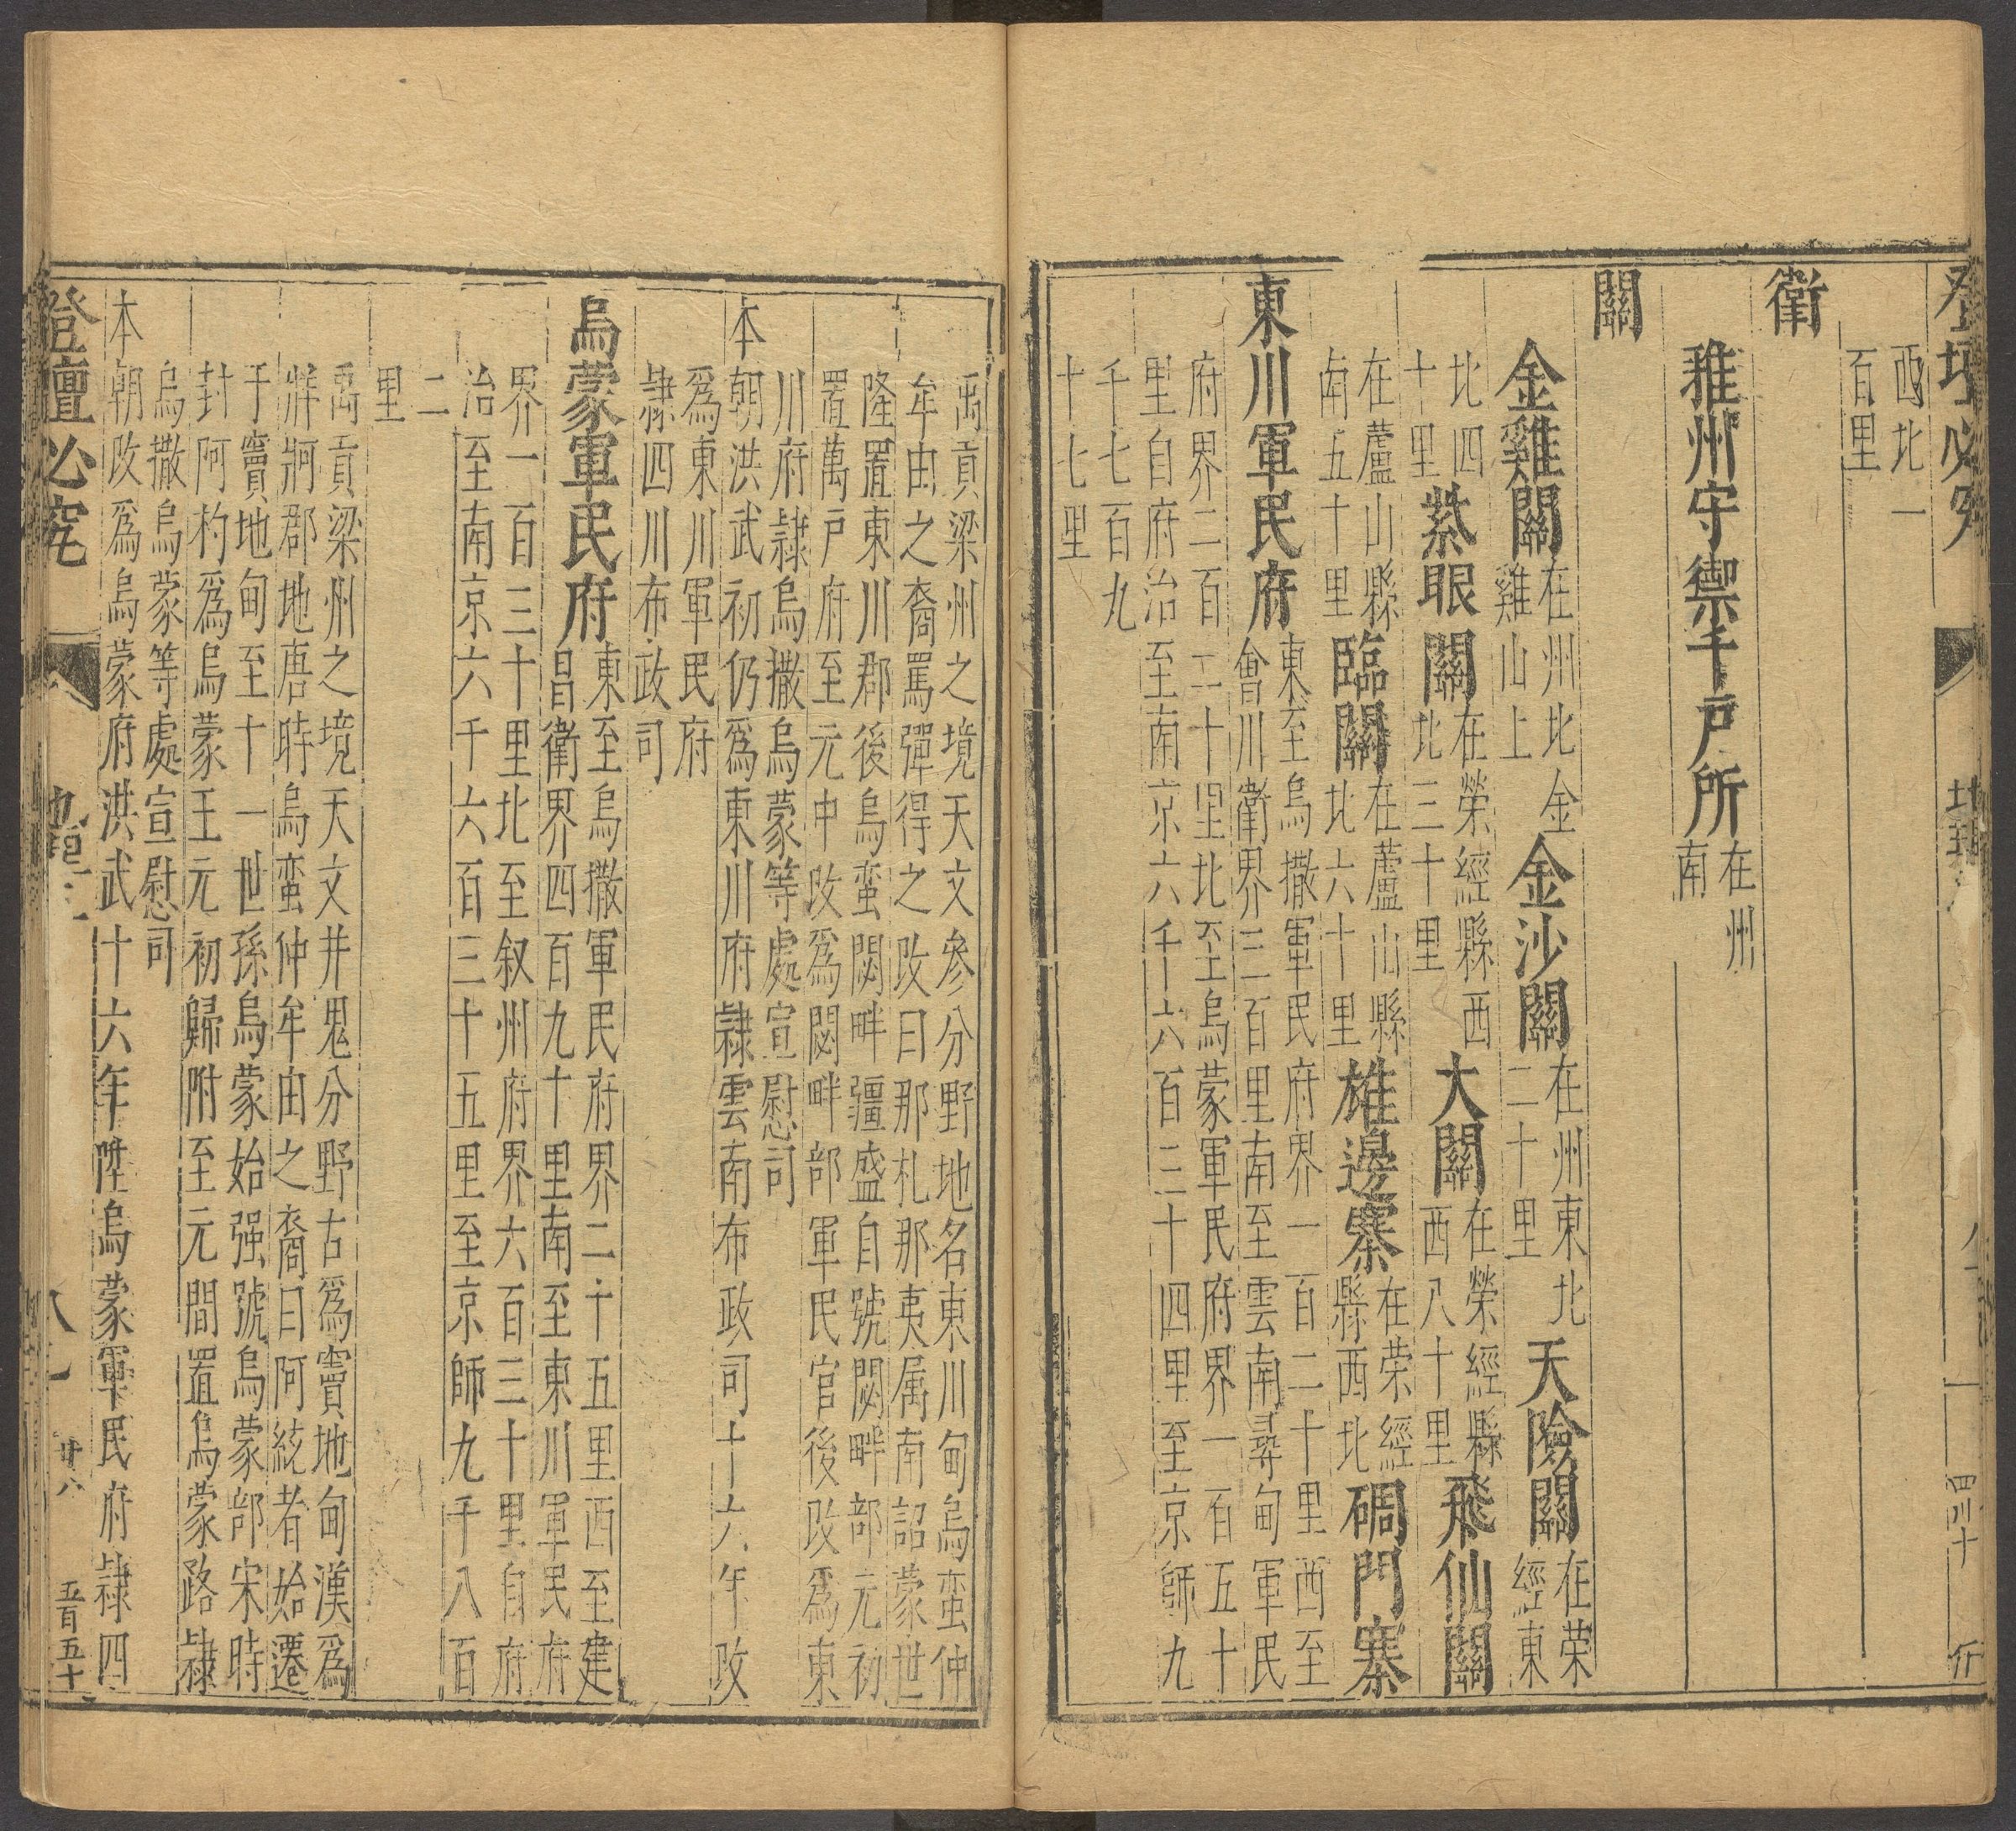 西北一
百里
衛
雅州守禦千戶所在州
南
關
金雞關在州北金
雞山上
金沙關在州東北
二十里
天險關在荣
經東
北四
十里
紫眼關在榮經縣西
北三十里
大關在榮經縣
西八十里
飛仙關
在蘆山縣
南五十里
臨關在蘆山縣
北六十里
雄邊寨在荣經
縣西北
碉門寨
東川軍民府東至烏撒軍民府界一百二十里西至
會川衛界三百里南至雲南尋甸軍民
府界二百二十里北至烏蒙軍民府界一百五十
里自府治至南京六千六百三十四里至京師九
千七百九
十七里
禹貢梁州之境天文參分野地名東川甸烏蛮仲
牟由之裔罵彈得之改曰那札那夷属南詔蒙世
隆置東川郡後烏蛮閟畔疆盛自號閟畔部元初
置萬戶府至元中改爲閟畔部軍民官後改爲東
川府隸烏撒烏蒙等處宣慰司
本朝洪武初仍爲東川府隸雲南布政司十六年改
爲東川軍民府
隸四川布政司
烏蒙軍民府東至烏撒軍民府界二十五里西至建
昌衛界四百九十里南至東川軍民府
界一百三十里北至叙州府界六百三十里自府
治至南京六千六百三十五里至京師九千八百
二
里
禹貢梁州之境天文井鬼分野古爲竇地甸漢爲
牂牁郡地唐時烏蛮仲牟由之裔曰阿統者始遷
于竇地甸至十一世孫烏蒙始强號烏蒙部宋時
封阿杓爲烏蒙王元初歸附至元間置烏蒙路隸
烏撒烏蒙等處宣慰司
本朝改爲烏蒙府洪武十六年陞烏蒙軍民府隸四
登壇必究
廿八
五百五十